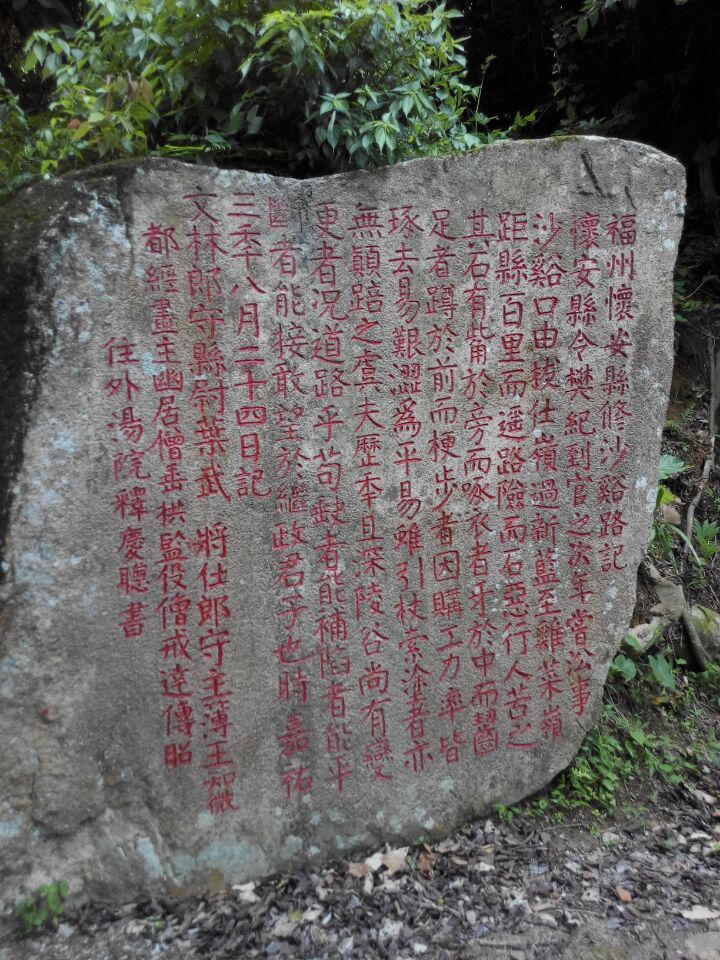 福州懷安縣修沙谿路記
懷安縣令樊紀到官之次年嘗㳂事
沙谿口由拔仕嶺過新藍至雞菜嶺
距縣百里而遥路險而石惡行人苦之
其石有觜於旁而啄衣者牙於中而齧
足者蹲於前而梗步者因購工力率皆
琢去易艱澀爲平易雖引杖索塗者亦
無顛踣之虞夫歷年且深陵谷尚有變
更者况道路乎苟缺者能補陷者能平
者能接敢望於繼政君子也時嘉祐
三秊八月二十四日記
文林郎守縣尉葉武 將仕郎守主薄王知微
都經畫主幽居僧岳栱監役僧戒達傳昭
住外湯院釋慶聰書